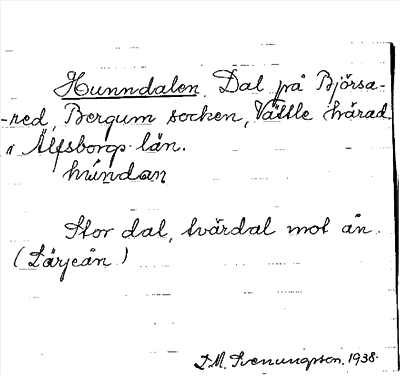 Hunndalen. Dal på Björsa-
-red, Bergum socken, Vättle härad
i Älfsborgs län.
húndan
Stor dal, tvärdal mot ån.
(Lärjeån)
D.M. Svenungsson. 1938.